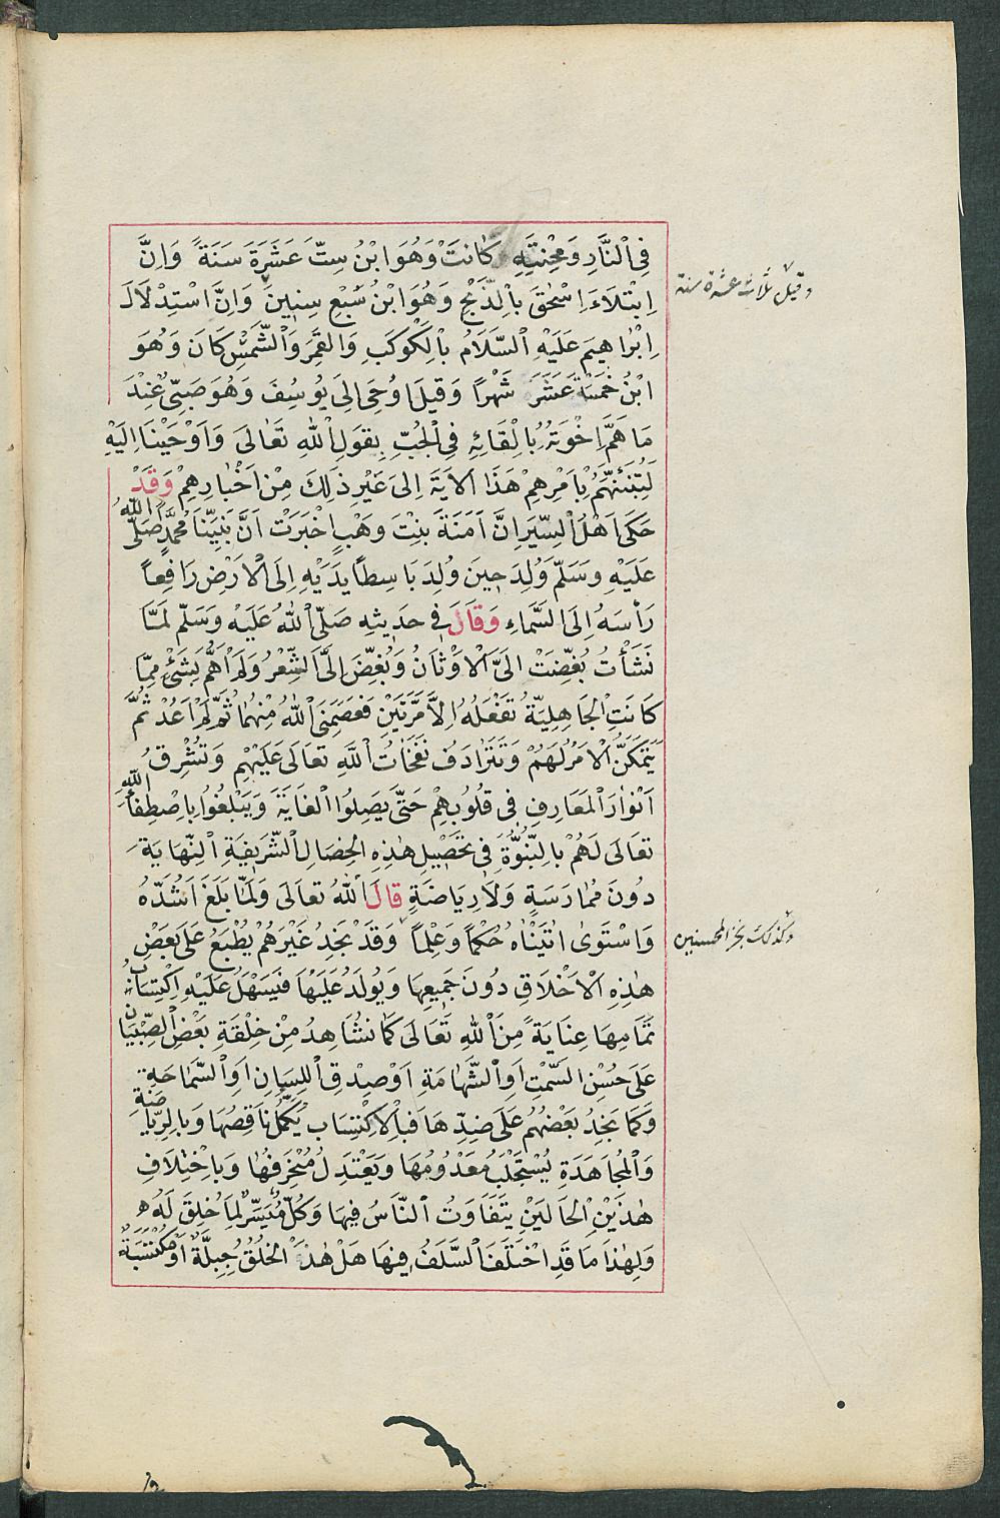 فِي اْلنَّارِ وَمِحْنَتِهِ كَانَتْ وَهُوَ ابْنُ سِتَّ عَشَرَةَ سَنَةً وَاِنَّ
وقيل ثلاث عشرة سنة
اِبْتِلَاءَ اِسْحٰقَ بِاْلذَّبْحِ وَهُوَ ابْنُ سَبْعِ سِنِينَ وَاِنَّ اسْتِدْلَالَ
اِبْرٰاهِيمَ عَلَيْهِ اْلسَّلَامُ بِاْلكَوْكَبِ وَالْقَمَرِ وَاْلشَّمْسِ كَانَ وَهُوَ
ابْنُ خَمْسَةَ عَشَرَ شَهْرًا وَقِيلَ اُوحِىَ اِلَى يُوسُفَ وَهُوَ صَبِيٌّ عِنْدَ
مَا هَمَّ اِخْوَتُهُ بِالْقَائِهِ فِي اْلجُبِّ بِقَوْلِ اْللّٰهِ تَعَالىَ وَاَوْحَيْنَا اِلَيْهِ
لَتُنَبِّئَنَّهُمْ بِاَمْرِهِمْ هَذَا الْآيَةَ اِلىَ غَيْرِ ذٰلِكَ مِنْ اَخْبَارِهِمْ وَقَدْ
حَكَى اَهْلُ اْلسِّيَرِ اِنَّ اٰمَنَةَ بِنْتَ وَهْبٍ اَخْبَرَتْ اَنَّ نَبِيَّنَا مُحَمَّدًا صَلَّى اللّٰهُ
عَلَيْهِ وَسَلَّمَ وُلِدَ حِينَ وُلِدَ بَاسِطًا يَدَيْهِ اِلَى اْلاَرْضِ رَافِعًا
رَأْسَهُ اِلَى السَّمَاءِ وَقَالَ فِي حَدِيثِهِ صَلَّى اْللّٰهُ عَلَيْهِ وَسَلَّمَ لَمَّا
نَشَأْتُ بُغِّضَتْ اِلَيَّ اْلاَوْثَانُ وَبُغِّضَ اِلَيَّ الشِّعْرُ وَلَمْ اَهُمَّ بِشَيْءٍ مِمَّا
كَانَتِ الْجَاهِلِيَّةُ تَفْعَلُهُ اِلَّا مَرَّتَيْنِ فَعَصَمَنِيَ اْللّٰهُ مِنْهُمَا ثُمَّ لَمْ اَعُدْ ثُمَّ
يَتَمَكَّنُ اْلاَمْرُ لَهُمْ وَتَتَرَادَفُ نَفَحَاتُ اْللّٰهِ تَعَالَى عَلَيْهِمْ وَتُشْرِقُ
اَنْوَارُ الْمَعَارِفِ فِي قُلُوبِهِمْ حَتَّى يَصِلُوا الْغَايَةَ وَيَبْلُغُوا بِاصْطِفَاءِ اللّٰهِ
تَعَالَى لَهُمْ بِالنُّبُوَّةِ فِي تَحْصِيْلِ هٰذِهِ الْخِصَالِ اْلشَّرِيفَةِ اْلنِّهَايَةَ
دُونَ مُمَارَسَةٍ وَلَا رِيَاضَةٍ قَالَ اْللّٰهُ تَعَالَى وَلَمَّا بَلَغَ اَشُدَّهُ
وَاسْتَوىٰ اٰتَيْنَاهُ حُكْمًا وَعِلْمًا وَقَدْ نَجِدُ غَيْرَهُمْ يُطْبَعُ عَلَى بَعْضِ
وكذلك نجز المحسنين
هٰذِهِ اْلاَخْلَاقِ دُونَ جَمِيعِهَا وَيُولَدُ عَلَيْهَا فَيَسْهُلُ عَلَيْهِ اِكْتِسَابُ
تَمَامِهَا عِنَايَةً مِنَ اْللّٰهِ تَعَالَى كَمَا نُشَاهِدُ مِنْ خِلْقَةِ بَعْضِ الصِّبْيَانِ
عَلَى حُسْنِ السَّمْتِ اَوِ اْلشَّهَامَةِ اَوْ صِدْقِ اْللِّسَانِ اَوِ اْلسَّمَاحَةِ
وَكَمَا نَجِدُ بَعْضُهُمْ عَلَى ضِدِّهَا فَبِاْلاِكْتِسَابِ يَكْمُلُ نَاقِصُهَا وَبِالرِّيَاضَةِ
وَاْلمُجَاهَدَةِ يُسْتَجْلَبُ مَعْدُومُهَا وَيَعْتَدِلُ مُنْحَرِفُهَا وَبِاخْتِلَافِ
هٰذَيْنِ اْلحَالَيْنِ يَتَفَاوَتُ اْلنَّاسُ فِيهَا وَكُلٌّ مُيَسَّرٌ لِمَا خُلِقَ لَهُ
وَلِهٰذَا مَا قَدِ اخْتَلَفَ اْلسَّلَفُ فِيهَا هَلْ هٰذَا الْخُلُقُ جِبِلَّةٌ اَوْ مُكْتَسَبَةٌ